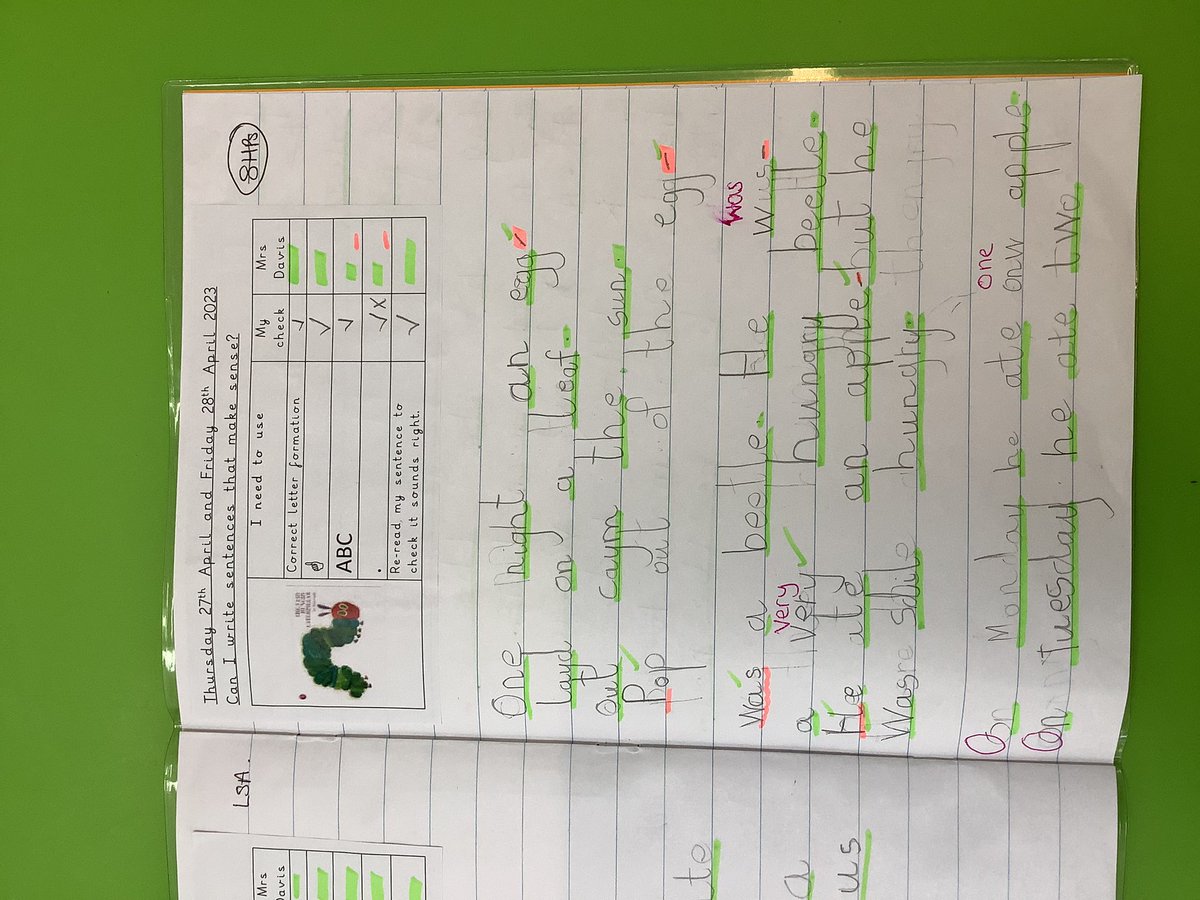 8HPs
Thursday 27th April and Friday 28th April 2023
Can I write sentences that make sense?
I need to use
My check
Mrs Davis
Correct letter formation
ABC
.
Re-read my sentence to
check it sounds right.
One night an egg.
layd on a leaf.
Out caym the sun.
Pop out of the egg.
was
Was a beetle. the wus.
very
a very hungry beetle.
He aty an apple. but he
Was still hungry.
one
On Monday he ate onw apple.
On Tuesday he ate two
LSA.
Mrs
Davis
te
a
us